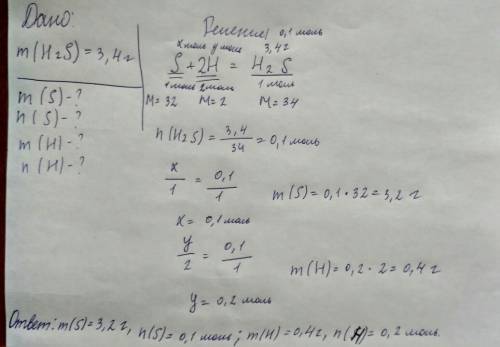 Дано:
m(H₂S) = 3,4 г
m(S) - ?
n(S) - ?
m(H) - ?
n(H) - ?
Решение:
0,1 моль
x моль y моль 3,4 г
S + 2H = H₂S
1 моль 2 моль 1 моль
M=32 M=2 M=34
n(H₂S) = 3,4/34 = 0,1 моль
x/1 = 0,1/1
m(S) = 0,1 · 32 = 3,2 г
x = 0,1 моль
y/2 = 0,1/1
m(H) = 0,2 · 2 = 0,4 г
y = 0,2 моль
Ответ: m(S) = 3,2 г, n(S) = 0,1 моль; m(H) = 0,4 г, n(H) = 0,2 моль.